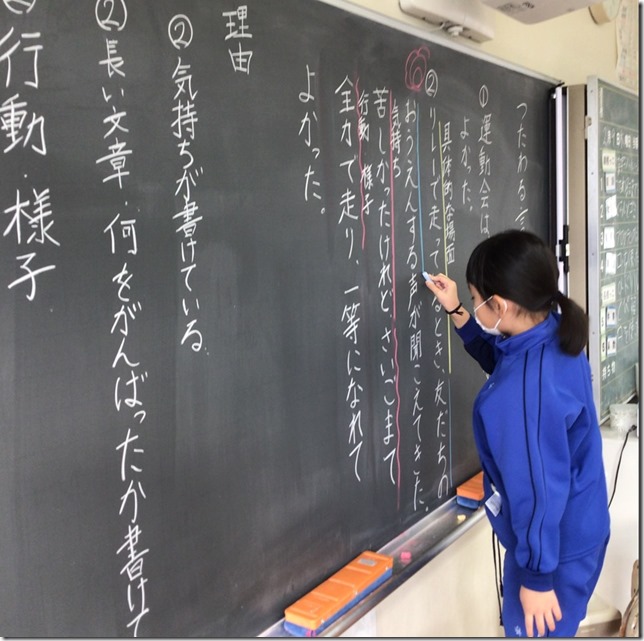 つたわる言
①運動会は、
よかった。
具体的な場面
②リレーで走っているとき、友だちの
おうえんする声が聞こえてきた。
気持ち
苦しかったけれど、さいごまで
行動・様子
全力で走り、一等になれて
よかった。
理由
②気持ちが書けている。
②長い文章・何をがんばったか書けて
行動・様子